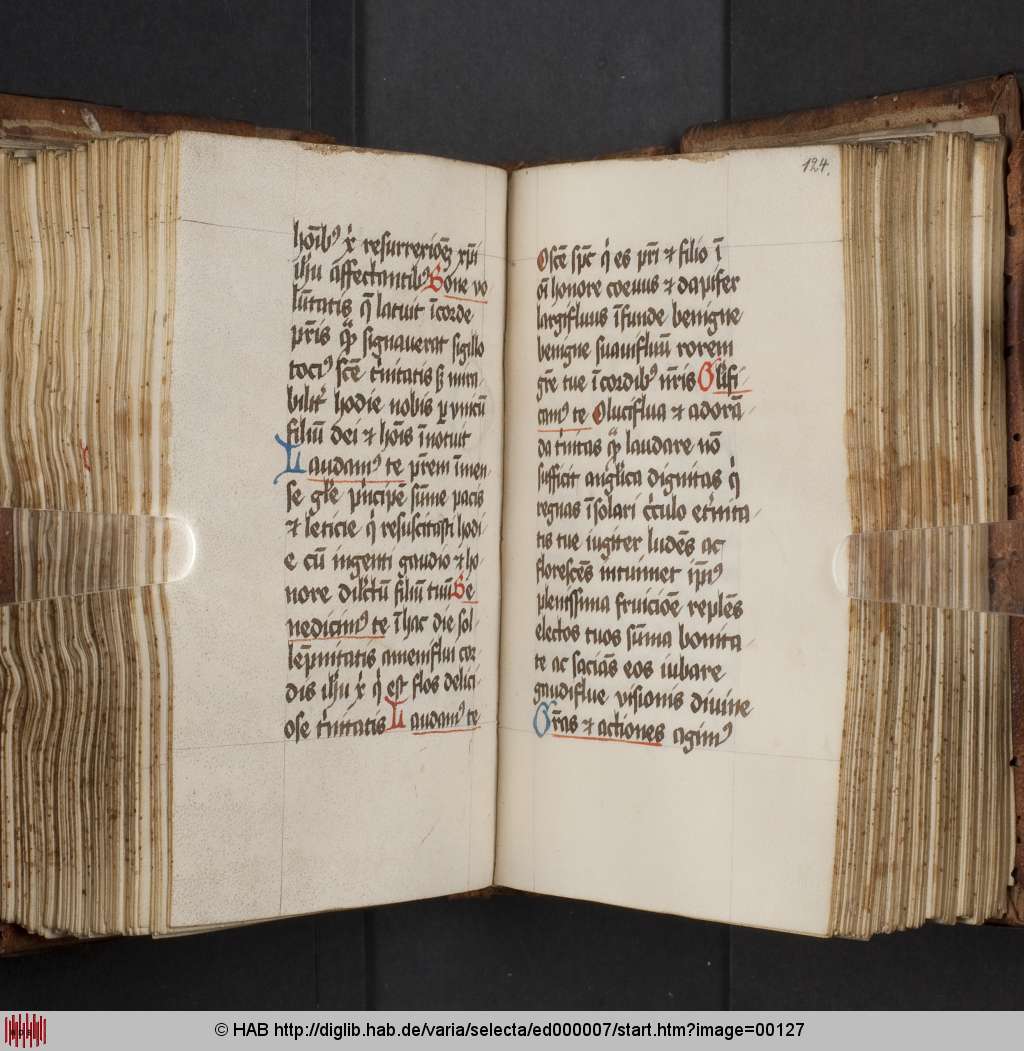 hōib⁹ x̄ resurrexionē xp̄i
ih̄u āffectantib⁹ Bone vo
lūtatis q̄ latuit ī corde
pr̄is signauerat sigillo
toci⁹ scē t'nitatis s; mira-
bilit' hodie nobis p vnicū
filiū dei ⁊ hōis īnotuit
Laudam⁹ te pr̄em īmen
se gl'e p'ncipē sūme pacis
⁊ leticie q' resuscitasti hodi
e cū ingenti gaudio ⁊ ho-
nore dil'ctū filiū tuū Be
nedicim⁹ te ī hac die sol-
lēpnitatis ameniflui cor-
dis ih̄u x̄ q' est flos delici-
ose t'nitatis Laudam⁹ te
124.
O scē sp̄c q' es pr̄i ⁊ filio ī
oī honore coeuus ⁊ dapifer
largifluus īfunde benigne
benigne suauifluū rorem
gr̄e tue ī cordib⁹ nr̄is Gl'ifi-
cam⁹ te O luciflua ⁊ adorā-
da t'nitas laudare nō
sufficit anglica dignitas q'
regnas ī solari c'culo et'nita-
tis tue iugiter ludēs ac
florescēs intuimet ip̄i⁹
plenissima fruicioē replēs
electos tuos sūma bonita-
te ac saciās eos iubare
gaudiflue visionis divine
Gr̄as ⁊ actiones agim⁹
© HAB http://diglib.hab.de/varia/selecta/ed000007/start.htm?image=00127